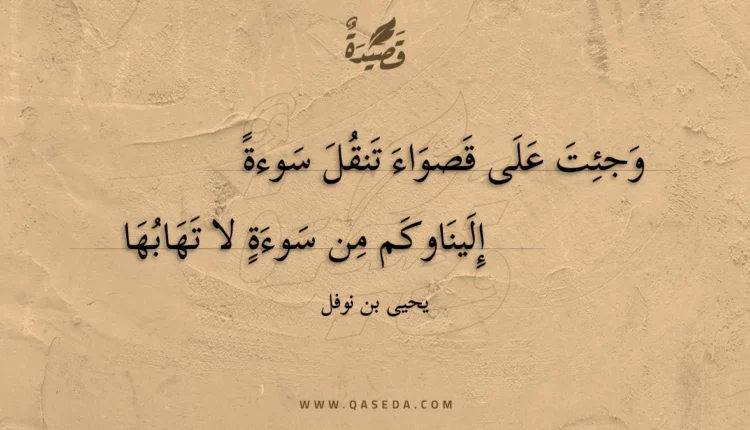 قَصِيدَةٌ
وَجئِتَ عَلَى قَصوَاءَ تَنقُلَ سَوءةً
إِلَينَاوكَم مِن سَوءَةٍ لا تَهَابُهَا
يحيى بن نوفل
WWW.QASEDA.COM